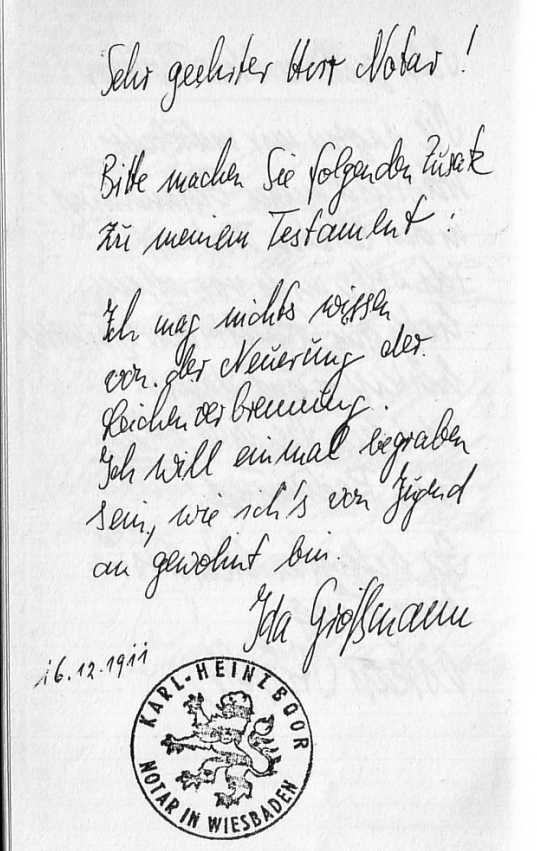 Sehr geehrter Herr Notar!
Bitte machen Sie folgenden Zusatz
zu meinem Testament:
Ich mag nichts wissen
von der Neuerung der
Leichenverbrennung.
Ich will einmal begraben
sein, wie ich's von Jugend
an gewohnt bin.
Ida Großmann
16.12.1911
KARL-HEINZ BOOR
NOTAR IN WIESBADEN